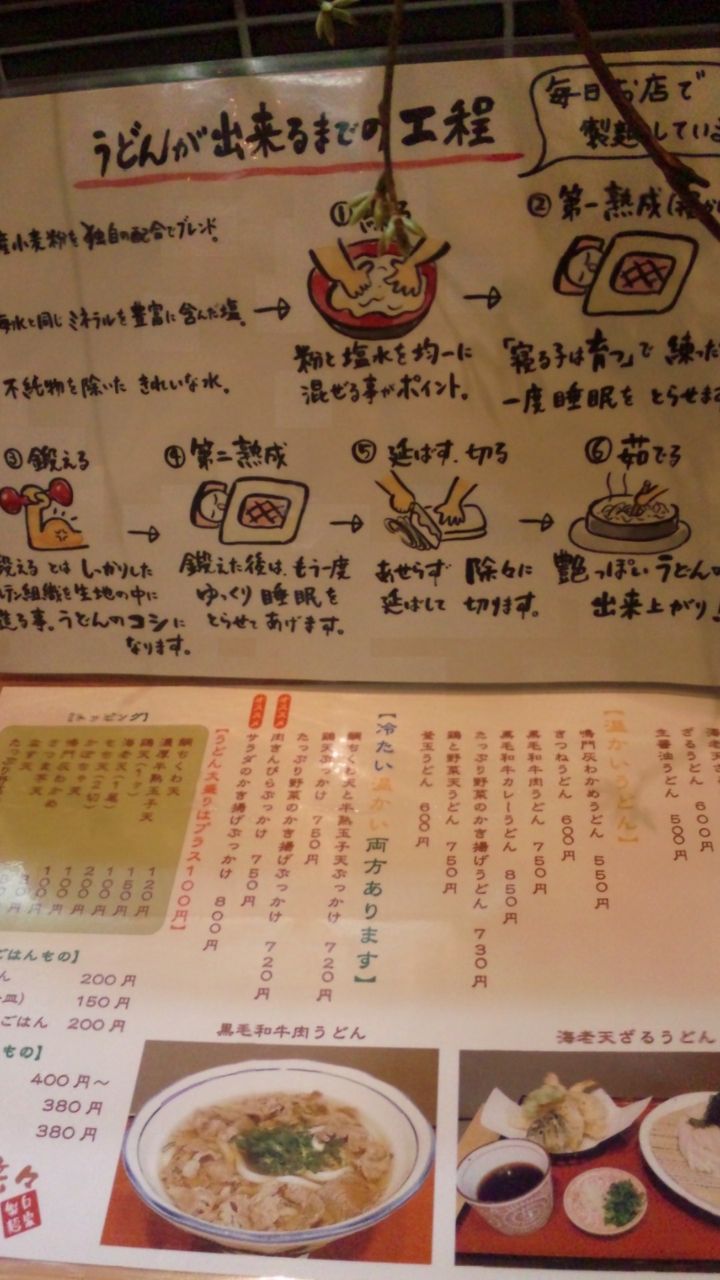 うどんが出来るまでの工程
毎日お店で
製麺している
産小麦粉を独自の配合でブレンド。
海水と同じミネラルを豊富に含んだ塩。
不純物を除いたきれいな水。
①
粉と塩水を均一に
混ぜる事がポイント。
②第一熟成
「寝る子は育つ」で練った
一度睡眠をとらせます
③鍛える
鍛えるとはしっかりした
テン組織を生地の中に
造る事。うどんのコシに
なります。
④第二熟成
鍛えた後は、もう一度
ゆっくり睡眠を
とらせてあげます。
⑤延ばす、切る
あせらず除々に
延ばして切ります。
⑥茹でる
艶っぽいうどんの
出来上がり！
海老天ざ
ざるうどん 600円
生醤油うどん 500円
【温かいうどん】
鳴門灰わかめうどん 550円
きつねうどん 600円
黒毛和牛肉うどん 750円
黒毛和牛カレーうどん 850円
たっぷり野菜のかき揚げうどん 730円
鶏と野菜天うどん 750円
釜玉うどん 600円
【冷たい温かい両方あります】
鯛ちくわ天と半熟玉子天ぶっかけ 720円
鶏天ぶっかけ 750円
たっぷり野菜のかき揚げぶっかけ 720円
オススメ
肉きんぴらぶっかけ 750円
オススメ
サラダのかき揚げぶっかけ 800円
【うどん大盛りはプラス100円】
[トッピング]
鯛ちくわ天 120円
濃厚半熟玉子天 150円
鶏天(1ケ) 100円
海老天(1尾) 200円
もち天(2ケ) 100円
かぼちゃ天 100円
鳴門灰わかめ
さつま芋天
ごはんもの】
ん 200円
皿) 150円
ごはん 200円
もの】
400円～
380円
380円
黒毛和牛肉うどん
海老天ざるうどん
々
自家製麺